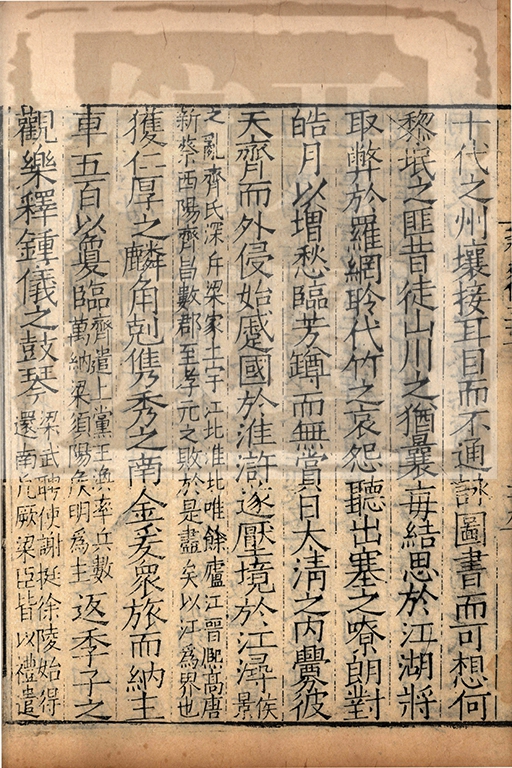 十代之州壤接耳目而不通詠圖書而可想何
黎氓之匪昔徒山川之猶曩每結思於江湖將
取弊於羅網聆代竹之哀怨聽出塞之嘹朗對
皓月以增愁臨芳罇而無賞日大清之内釁彼
天齊而外侵始蹙國於淮滸遂壓境於江潯侯景
之亂齊氏深斥梁家土宇江北淮北唯餘廬江晉熙高唐
新蔡西陽齊昌數郡至孝元之敗於是盡矣以江爲界也
獲仁厚之麟角剋儁秀之南金爰衆旅而納主
車五百以敻臨齊遣上黨王渙率兵數萬納梁須陽侯明爲主返季子之
觀樂釋鍾儀之鼓琴梁武聘使謝挺徐陵始得還南凡厥梁臣皆以禮遣